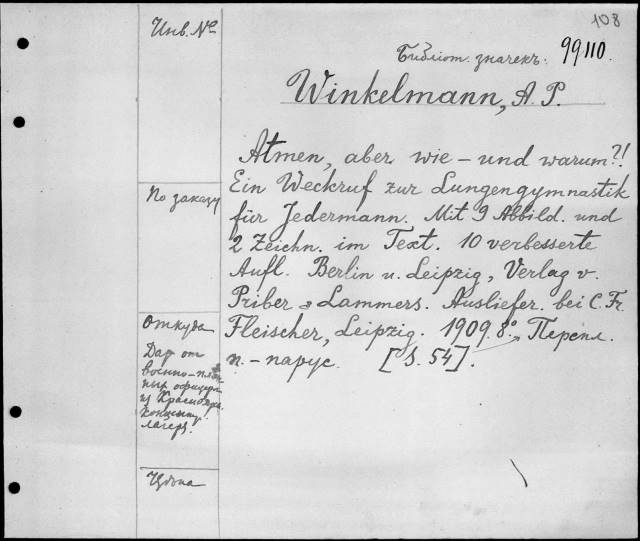 108
Инв. №
Библіот. значекъ: 99110.
Winkelmann, A. P.
Atmen, aber wie – und warum?!
Ein Weckruf zur Lungengymnastik
für Jedermann. Mit 9 Abbild. und
2 Zeichn. im Text. 10 verbesserte
Aufl. Berlin u. Leipzig, Verlag v.
Priber & Lammers. Ausliefer. bei C. Fr.
Fleischer, Leipzig. 1909. 8°. Перепл.
п. – парус. [S. 54].
По заказу
Откуда
Дар от
военно-плѣн
ных офицер.
из Краснояр.
концентр.
лагеря.
Цѣна